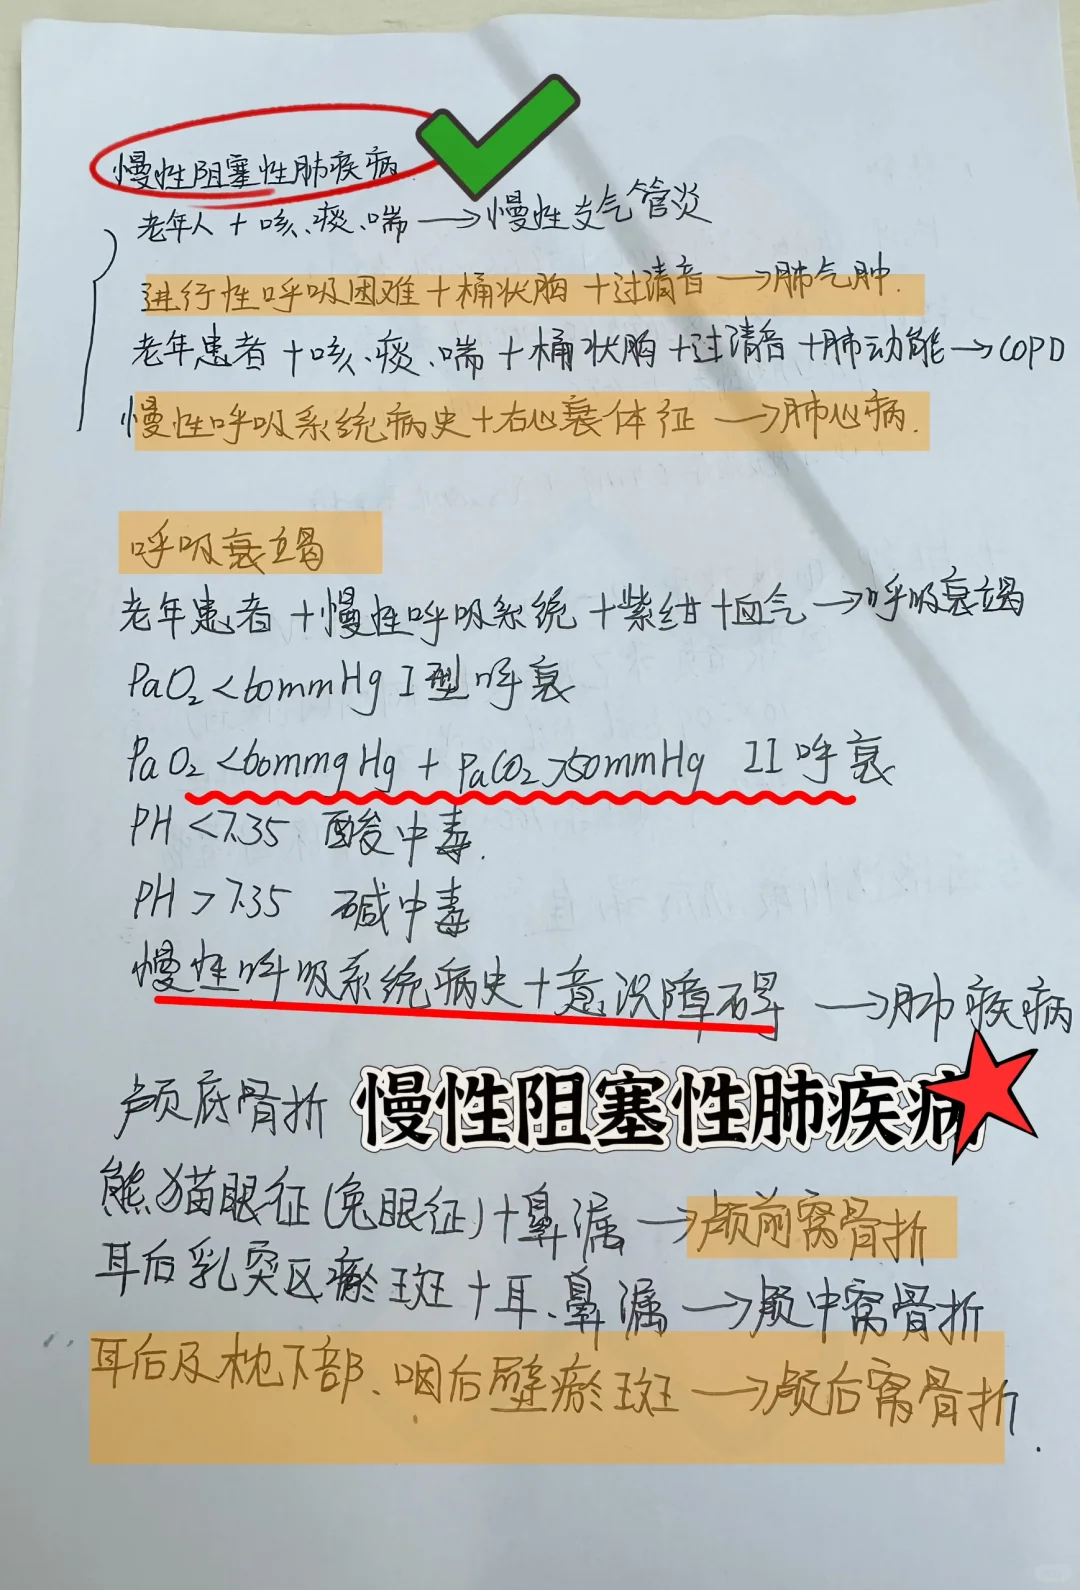 慢性阻塞性肺疾病.
老年人+咳、痰、喘→慢性支气管炎
进行性呼吸困难+桶状胸+过清音→肺气肿.
老年患者+咳、痰、喘+桶状胸+过清音+肺功能→COPD
慢性呼吸系统病史+右心衰体征→肺心病.
呼吸衰竭
老年患者+慢性呼吸系统+紫绀+血气→呼吸衰竭
PaO₂<60mmHg I型呼衰
PaO₂<60mmgHg+PaCO₂>50mmHg II呼衰
PH<7.35 酸中毒.
PH>7.35 碱中毒
慢性呼吸系统病史+意识障碍→肺疾病
颅底骨折
慢性阻塞性肺疾病
熊猫眼征(兔眼征)+鼻漏→颅前窝骨折
耳后乳突区瘀斑+耳、鼻漏→颅中窝骨折
耳后及枕下部、咽后壁瘀斑→颅后窝骨折.